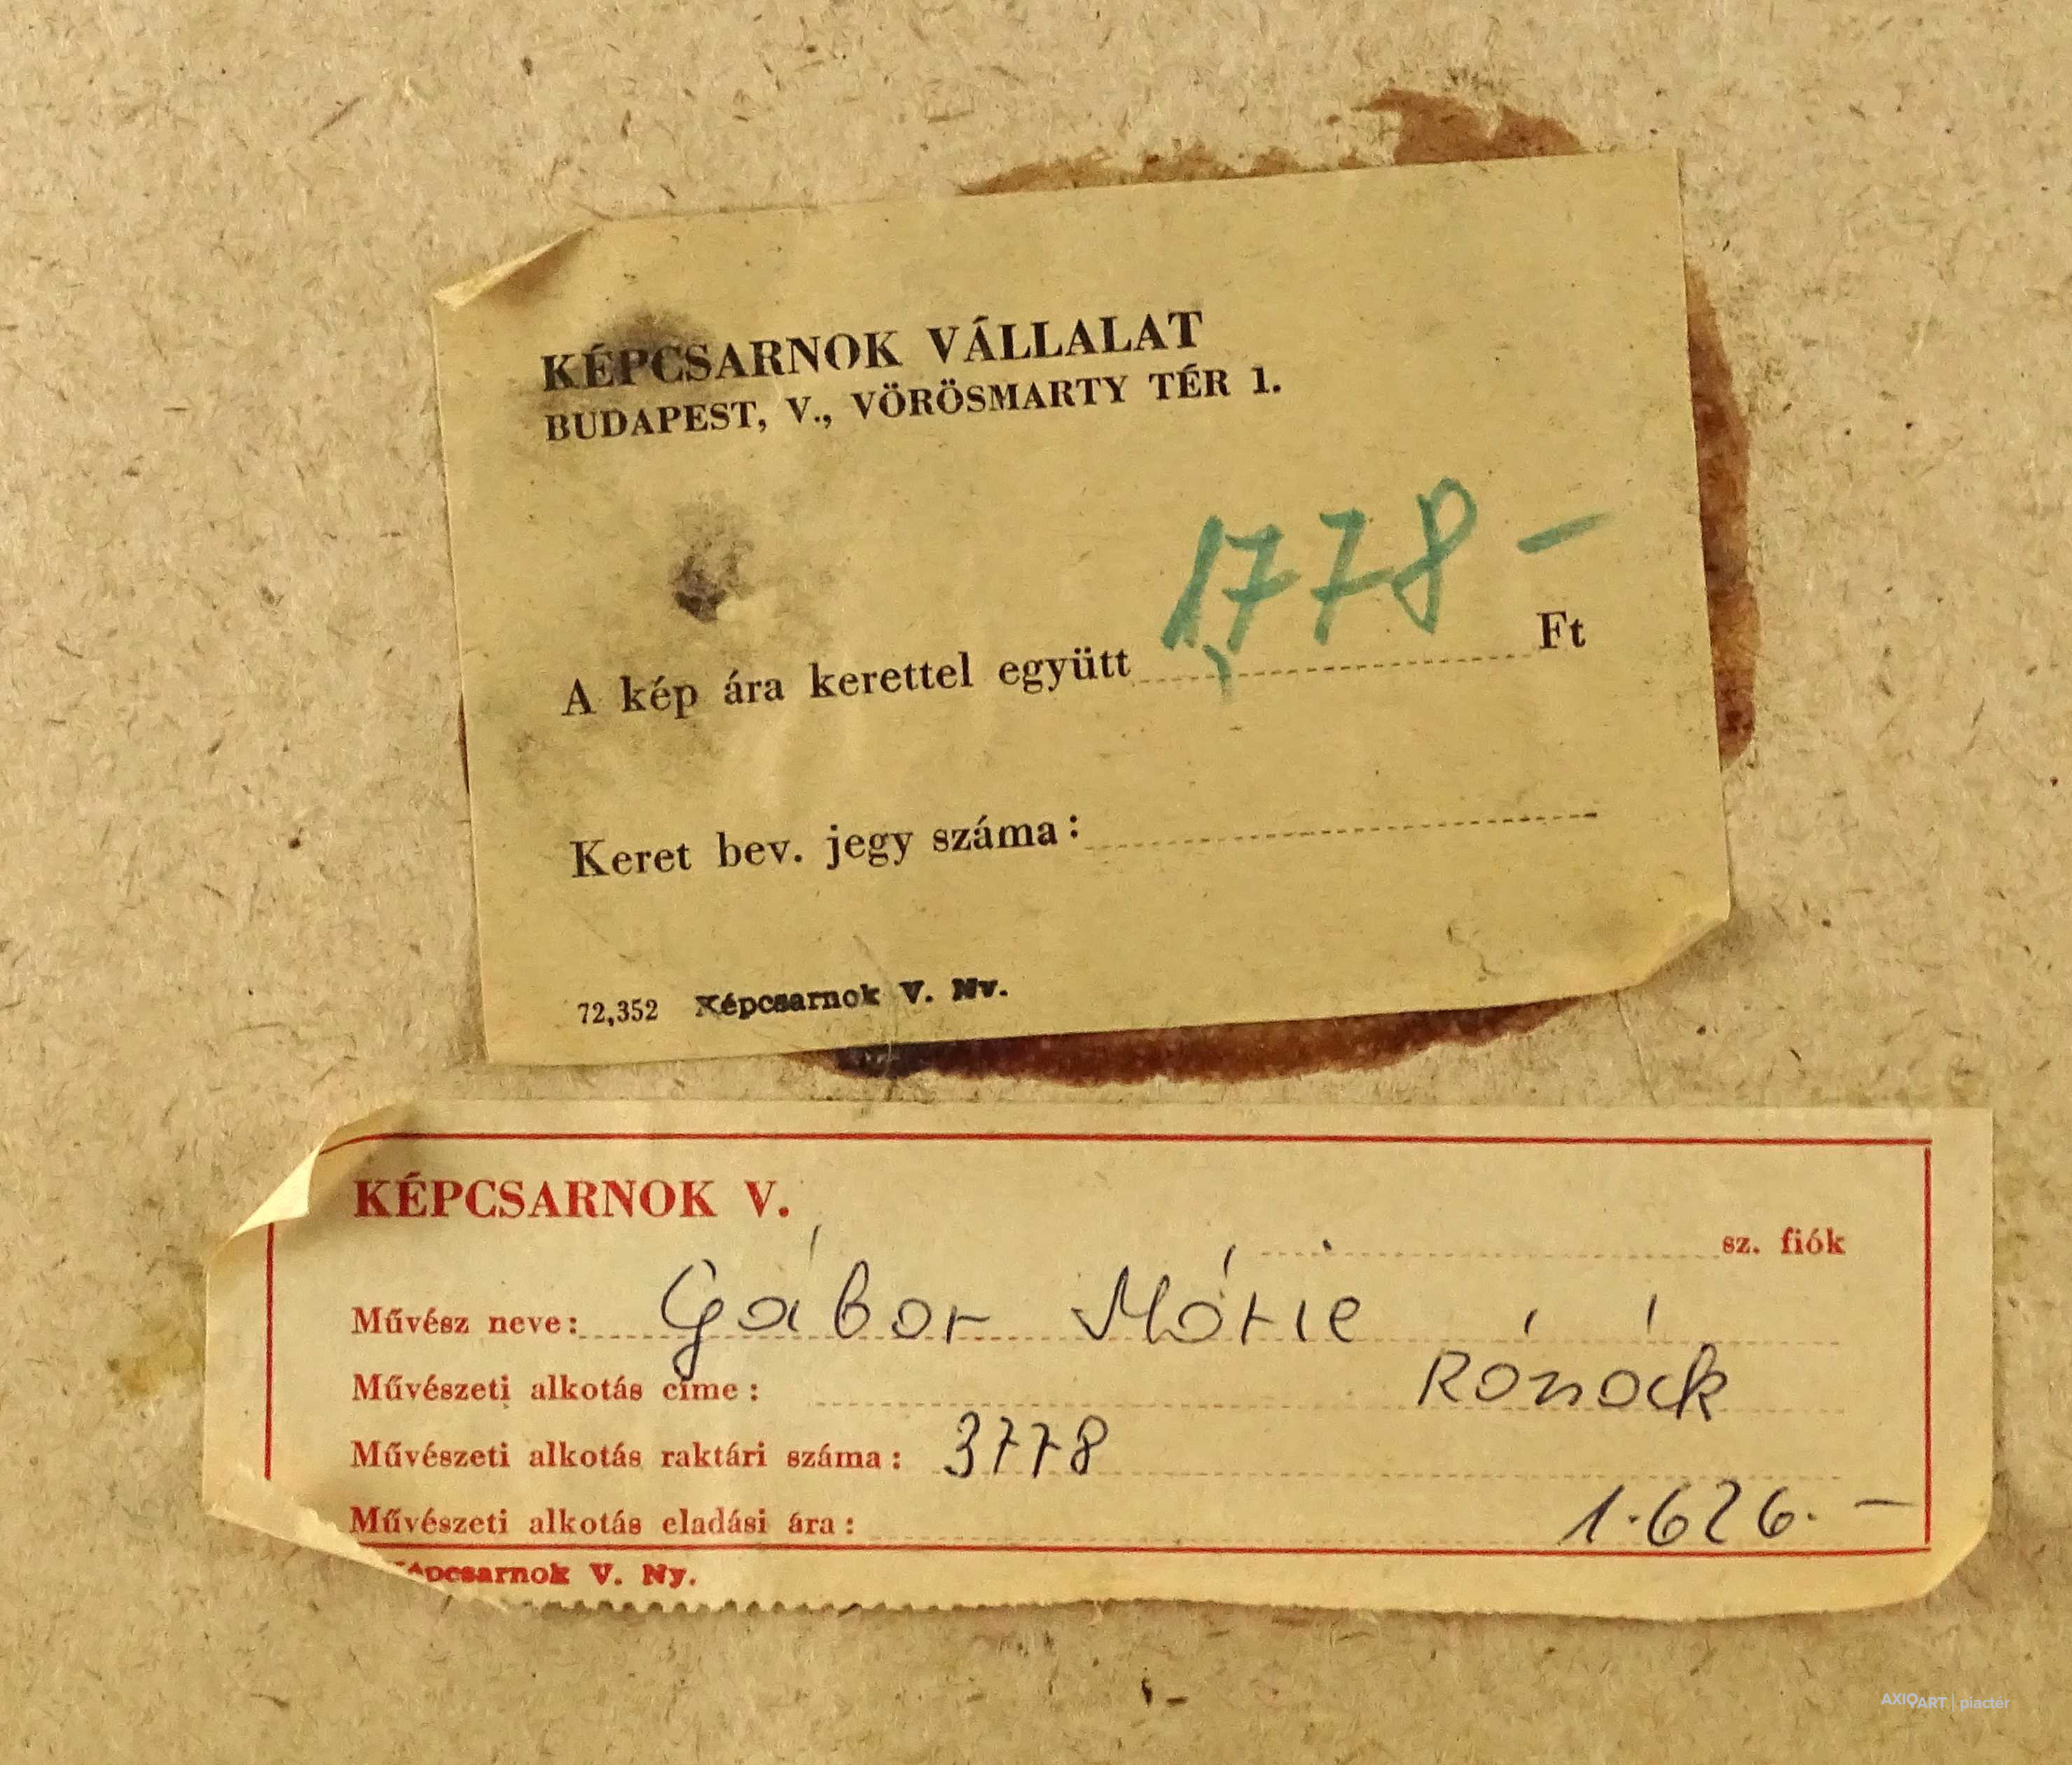 KÉPCSARNOK VÁLLALAT
BUDAPEST, V., VÖRÖSMARTY TÉR 1.
A kép ára kerettel együtt 1778 - Ft
Keret bev. jegy száma:
72,352 Képcsarnok V. Ny.
KÉPCSARNOK V.
sz. fiók
Művész neve: Gábor Mórie
Művészeti alkotás címe: Rózsák
Művészeti alkotás raktári száma: 3778
Művészeti alkotás eladási ára: 1.626. -
Képcsarnok V. Ny.
AXIOART | piactér